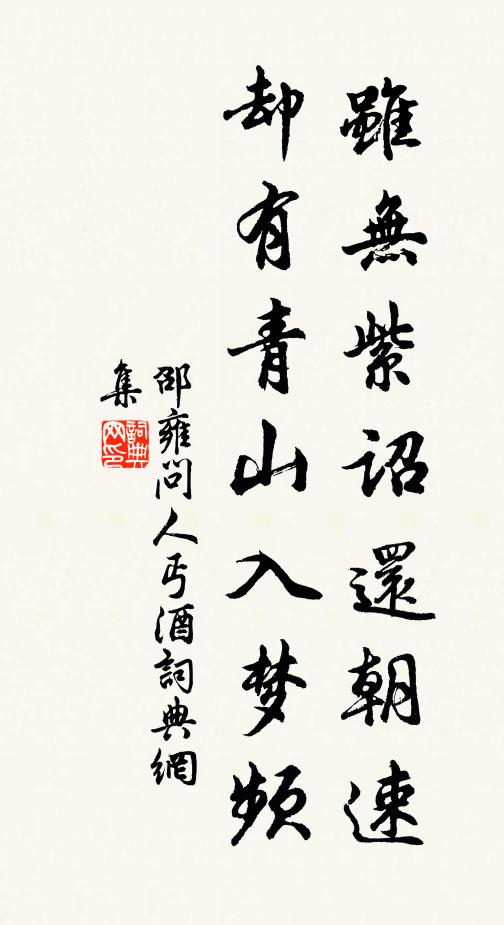 雖無紫詔還朝速
却有青山入梦頻
邵雍問人丐酒詞典網
集
詞典
网印